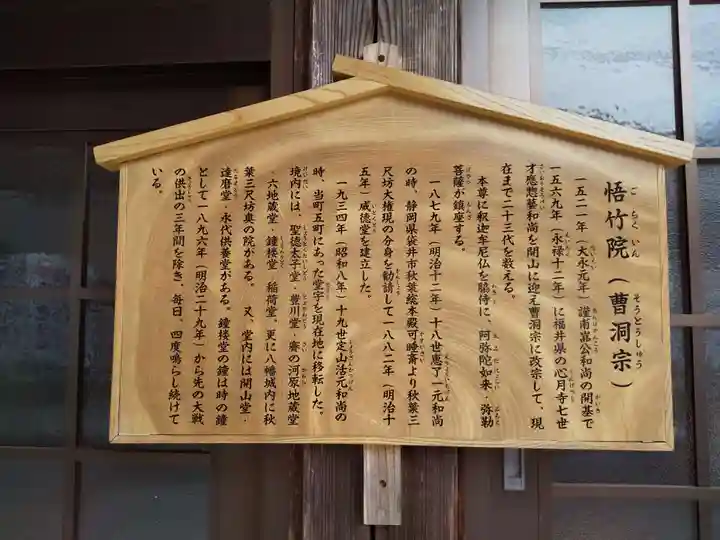 悟竹院（曹洞宗）
一五二一年（大永元年）謹南嵩公和尚の開基で
一五六九年（永禄十二年）に福井県の心月寺七世
才應惣藝和尚を開山に迎え曹洞宗に改宗して、現
在まで二十三代を数える。
本尊に釈迦牟尼仏を脇侍に、阿弥陀如来・弥勒
菩薩が鎮座する。
一八七九年（明治十二年）十八世恵了一元和尚
の時、静岡県袋井市秋葉総本殿可睡斎より秋葉三
尺坊大権現の分身を勧請して一八八二年（明治十
五年）威徳堂を建立した。
一九三四年（昭和八年）十九世定山活元和尚の
時、当町五町にあった堂宇を現在地に移転した。
境内には、聖徳太子堂・豊川堂・賽の河原地蔵堂
・六地蔵堂・鐘楼堂・稲荷堂。更に八幡城内に秋
葉三尺坊奥の院がある。又、堂内には開山堂・
達磨堂・永代供養堂がある。鐘楼堂の鐘は時の鐘
として一八九六年（明治二十九年）から先の大戦
の供出の三年間を除き、毎日、四度鳴らし続けて
いる。